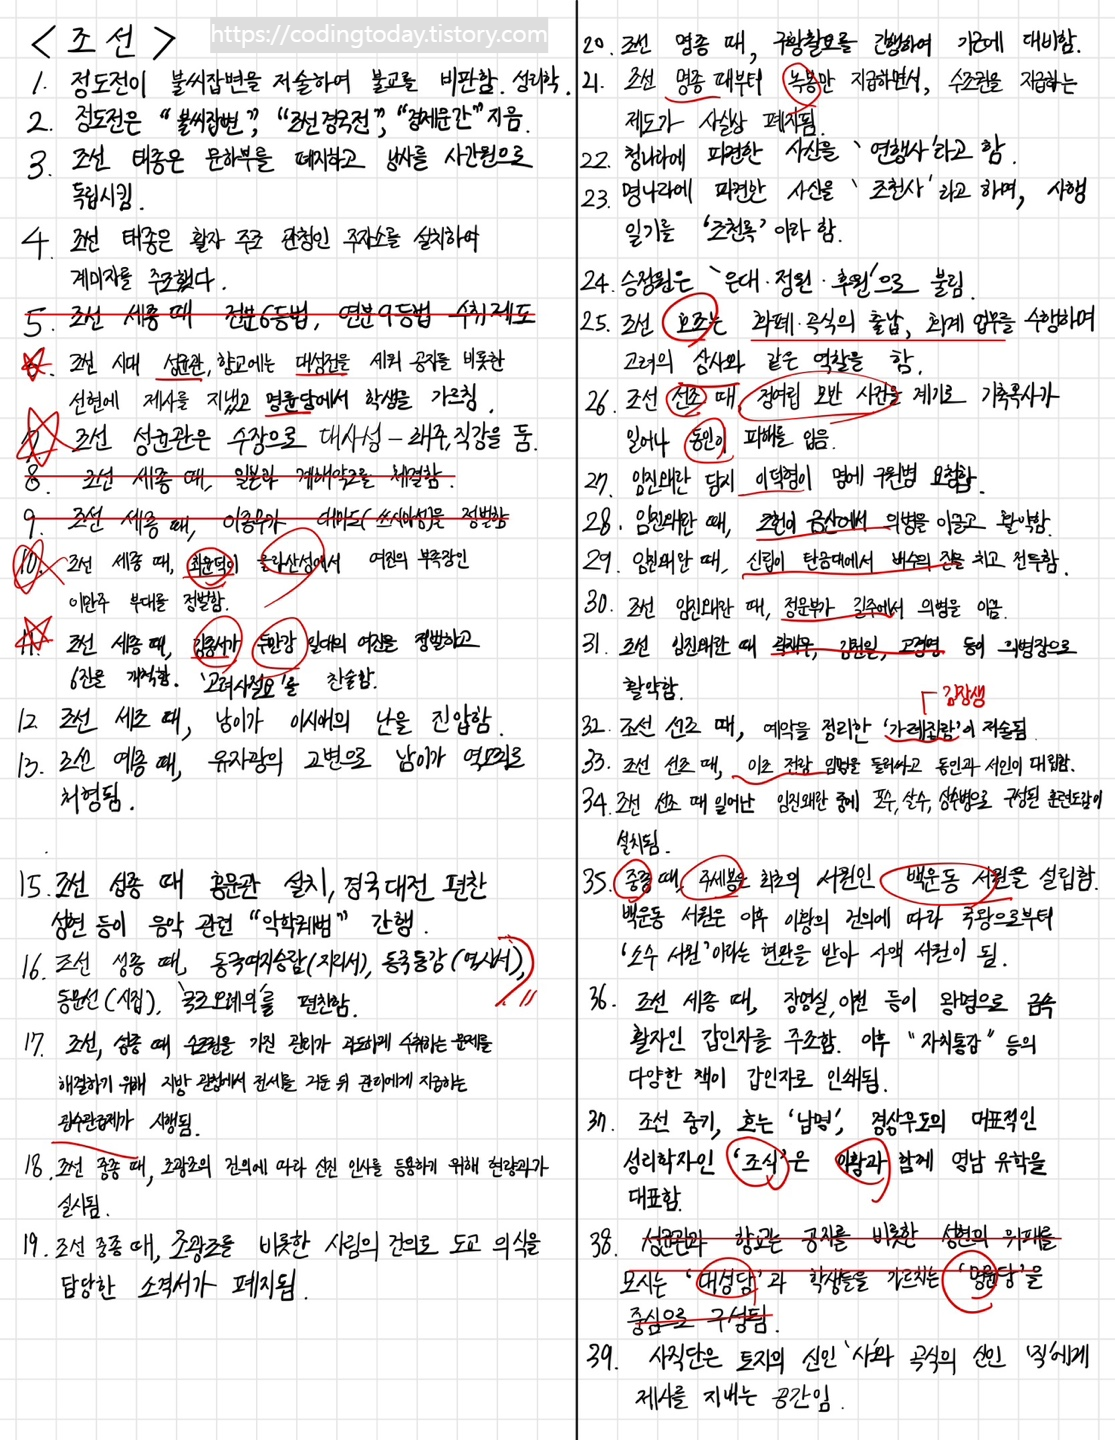 https://codingtoday.tistory.com
<조선>
1. 정도전이 불씨잡변을 저술하여 불교를 비판함. 성리학.
2. 정도전은 “불씨잡변”, “조선경국전”, “경제문간” 지음.
3. 조선 태종은 문하부를 폐지하고 낭사를 사간원으로
독립시킴.
4. 조선 태종은 활자 주조 관청인 주자소를 설치하여
계미자를 주조했다.
5. 조선 세종 때 전분6등법, 연분9등법 수취제도
6. 조선 시대 성균관, 향교에는 대성전을 세워 공자를 비롯한
선현에 제사를 지냈고 명륜당에서 학생을 가르침.
7. 조선 성균관은 수장으로 대사성 - 좨주, 직강을 둠.
8. 조선 세종 때, 일본과 계해약조를 체결함.
9. 조선 세종 때, 이종무가 대마도(쓰시마섬)을 정벌함
10. 조선 세종 때, 최윤덕이 올라산성에서 여진의 부족장인
이만주 부대를 정벌함.
11. 조선 세종 때, 김종서가 두만강 일대의 여진을 정벌하고
6진을 개척함. '고려사절요'을 찬술함.
12 조선 세조 때, 남이가 이시애의 난을 진압함.
13. 조선 예종 때, 유자광의 고변으로 남이가 역모죄로
처형됨.
15. 조선 성종 때 홍문관 설치, 경국대전 편찬
성현 등이 음악 관련 “악학궤범” 간행.
16. 조선 성종 때, 동국여지승람(지리서), 동국통감(역사서),
동문선(시집), '국조오례의'를 편찬함.
17. 조선, 성종 때 수조권을 가진 관리가 과도하게 수취하는 문제를
해결하기 위해 지방 관청에서 전세를 거둔 뒤 관리에게 지급하는
관수관급제가 시행됨.
18. 조선 중종 때, 조광조의 건의에 따라 신진 인사를 등용하기 위해 현량과가
실시됨.
19. 조선 중종 때, 조광조를 비롯한 사림의 건의로 도교 의식을
담당한 소격서가 폐지됨.
20. 조선 명종 때, 구황촬요를 간행하여 기근에 대비함.
21. 조선 명종 때부터 녹봉만 지급하면서, 수조권을 지급하는
제도가 사실상 폐지됨.
22. 청나라에 파견한 사신을 '연행사'라고 함.
23. 명나라에 파견한 사신을 '조천사'라고 하며, 사행
일기를 '조천록'이라 함.
24. 승정원은 '은대·정원·후원'으로 불림.
25. 조선 호조는 화폐·곡식의 출납, 회계 업무를 수행하며
고려의 삼사와 같은 역할을 함.
26. 조선 선조 때, 정여립 모반 사건을 계기로 기축옥사가
일어나 동인이 피해를 입음.
27. 임진왜란 당시 이덕형이 명에 구원병 요청함.
28. 임진왜란 때, 조헌이 금산에서 의병을 이끌고 활약함.
29. 임진왜란 때, 신립이 탄금대에서 배수의 진을 치고 전투함.
30. 조선 임진왜란 때, 정문부가 길주에서 의병을 이끎.
31. 조선 임진왜란 때 곽재우, 김천일, 고경명 등이 의병장으로
활약함.
김장생
32. 조선 선조 때, 예악을 정리한 '가례집람'이 저술됨.
33. 조선 선조 때, 이조 전랑 임명을 둘러싸고 동인과 서인이 대립함.
34. 조선 선조 때 일어난 임진왜란 중에 포수, 살수, 사수병으로 구성된 훈련도감이
설치됨.
35. 중종 때, 주세붕은 최초의 서원인 백운동 서원을 설립함.
백운동 서원은 이후 이황의 건의에 따라 국왕으로부터
'소수 서원'이라는 현판을 받아 사액 서원이 됨.
36. 조선 세종 때, 장영실, 이천 등이 왕명으로 금속
활자인 갑인자를 주조함. 이후 “자치통감” 등의
다양한 책이 갑인자로 인쇄됨.
37. 조선 중기, 호는 '남명', 경상우도의 대표적인
성리학자인 '조식'은 이황과 함께 영남 유학을
대표함.
38. 성균관과 향교는 공자를 비롯한 성현의 위패를
모시는 '대성당'과 학생들을 가르치는 '명륜당'을
중심으로 구성됨.
39. 사직단은 토지의 신인 '사'와 곡식의 신인 '직'에게
제사를 지내는 공간임.